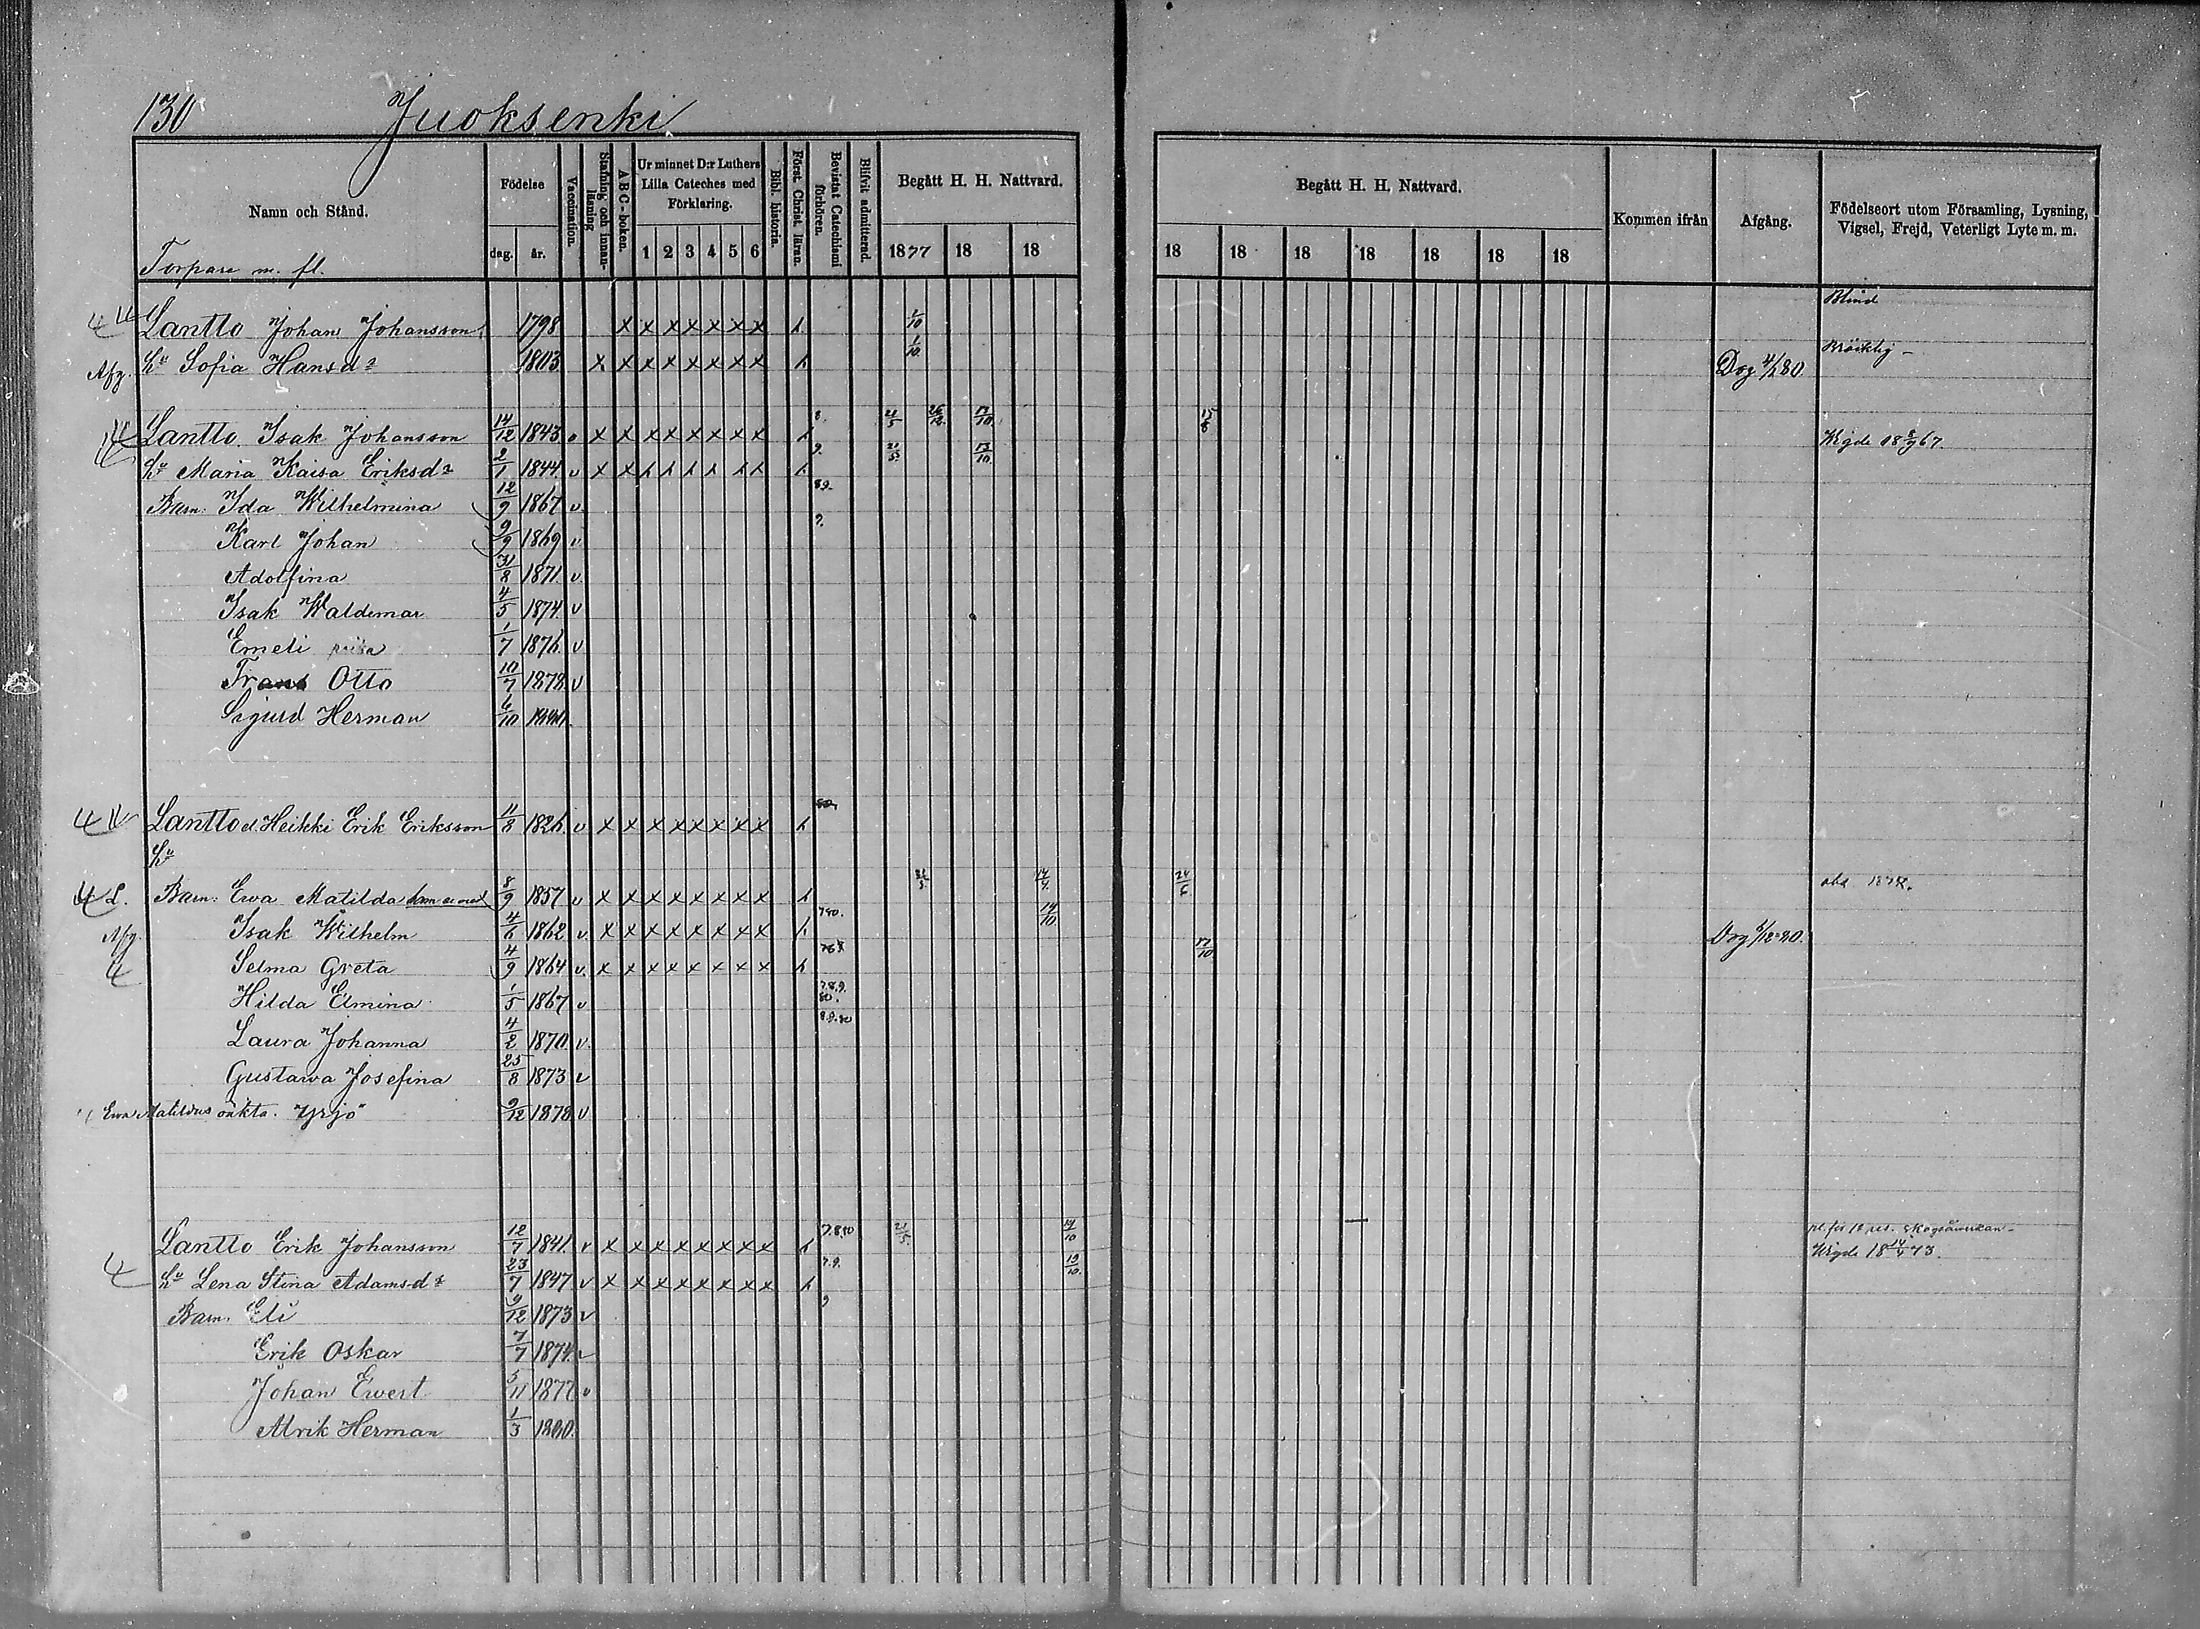 130 Juoksenki
Namn och Stånd. Födelse dag. år. Vaccination. Stafning och innanläsning A B C-boken. Ur minnet D:r Luthers Lilla Cateches med Förklaring. 1 2 3 4 5 6 Bibl. historia. Först. Christ. läran. Bevistat Catechismi förhören. Blifvit admitterad. Begått H. H. Nattvard. 1877 18 18
Begått H. H. Nattvard. 18 18 18 18 18 18 18 Kommen ifrån Afgång. Födelseort utom Församling, Lysning, Vigsel, Frejd, Veterligt Lyte m. m.
Torpare m. fl.
Blind
Lantto Johan Johansson 1798 x x x x x x x 1/10
Bräcklig
Afg. Hu Sofia Hansdr 1803 x x x x x x x x 1/10 Dog 4/1 80
Lantto Isak Johansson 14/12 1843 v x x x x x x x x 8. 21/5 26/12 13/10 15/6 Wigde 18 8/9 67.
Hu Maria Kaisa Eriksdr 2/1 1844 v x x 9. 21/5 13/10
Barn: Ida Wilhelmina 12/9 1867 v 89.
Karl Johan 9/9 1869 v 9.
Adolfina 31/8 1871 v
Isak Waldemar 4/5 1874 v
Emeli 1/7 1876 v
Frans Otto 10/7 1878 v
Sigurd Herman 6/10
Lantto el. Heikki Erik Eriksson 11/8 1826 v x x x x x x x x
Hu
L. Barn: Ewa Matilda 8/9 1857 v x x x x x x x x 14/4 24/6
Afg. Isak Wilhelm 4/6 1862 v x x x x x x x x 780. 14/10 Dog 6/12 80.
Selma Greta 4/9 1864 v x x x x x x x x 17/10
Hilda Elmina 1/5 1867 v 7.8.9. 80.
Laura Johanna 4/2 1870 v 8.9.80
Gustava Josefina 25/8 1873 v
Ewa Matildas oäkta. "Yrjö" 9/12 1878 v
Lantto Erik Johansson 12/7 1841 v x x x x x x x x 7.8.80 21/5 14/10
Wigde 18 14/4 73.
Hu Lena Stina Adamsdr 23/7 1847 v x x x x x x x x 7.9. 19/10
Barn. Eli 9/12 1873 v 9
Erik Oskar 7/7 1874 v
Johan Ewert 5/11 1877 v
Alrik Herman 1/3 1880